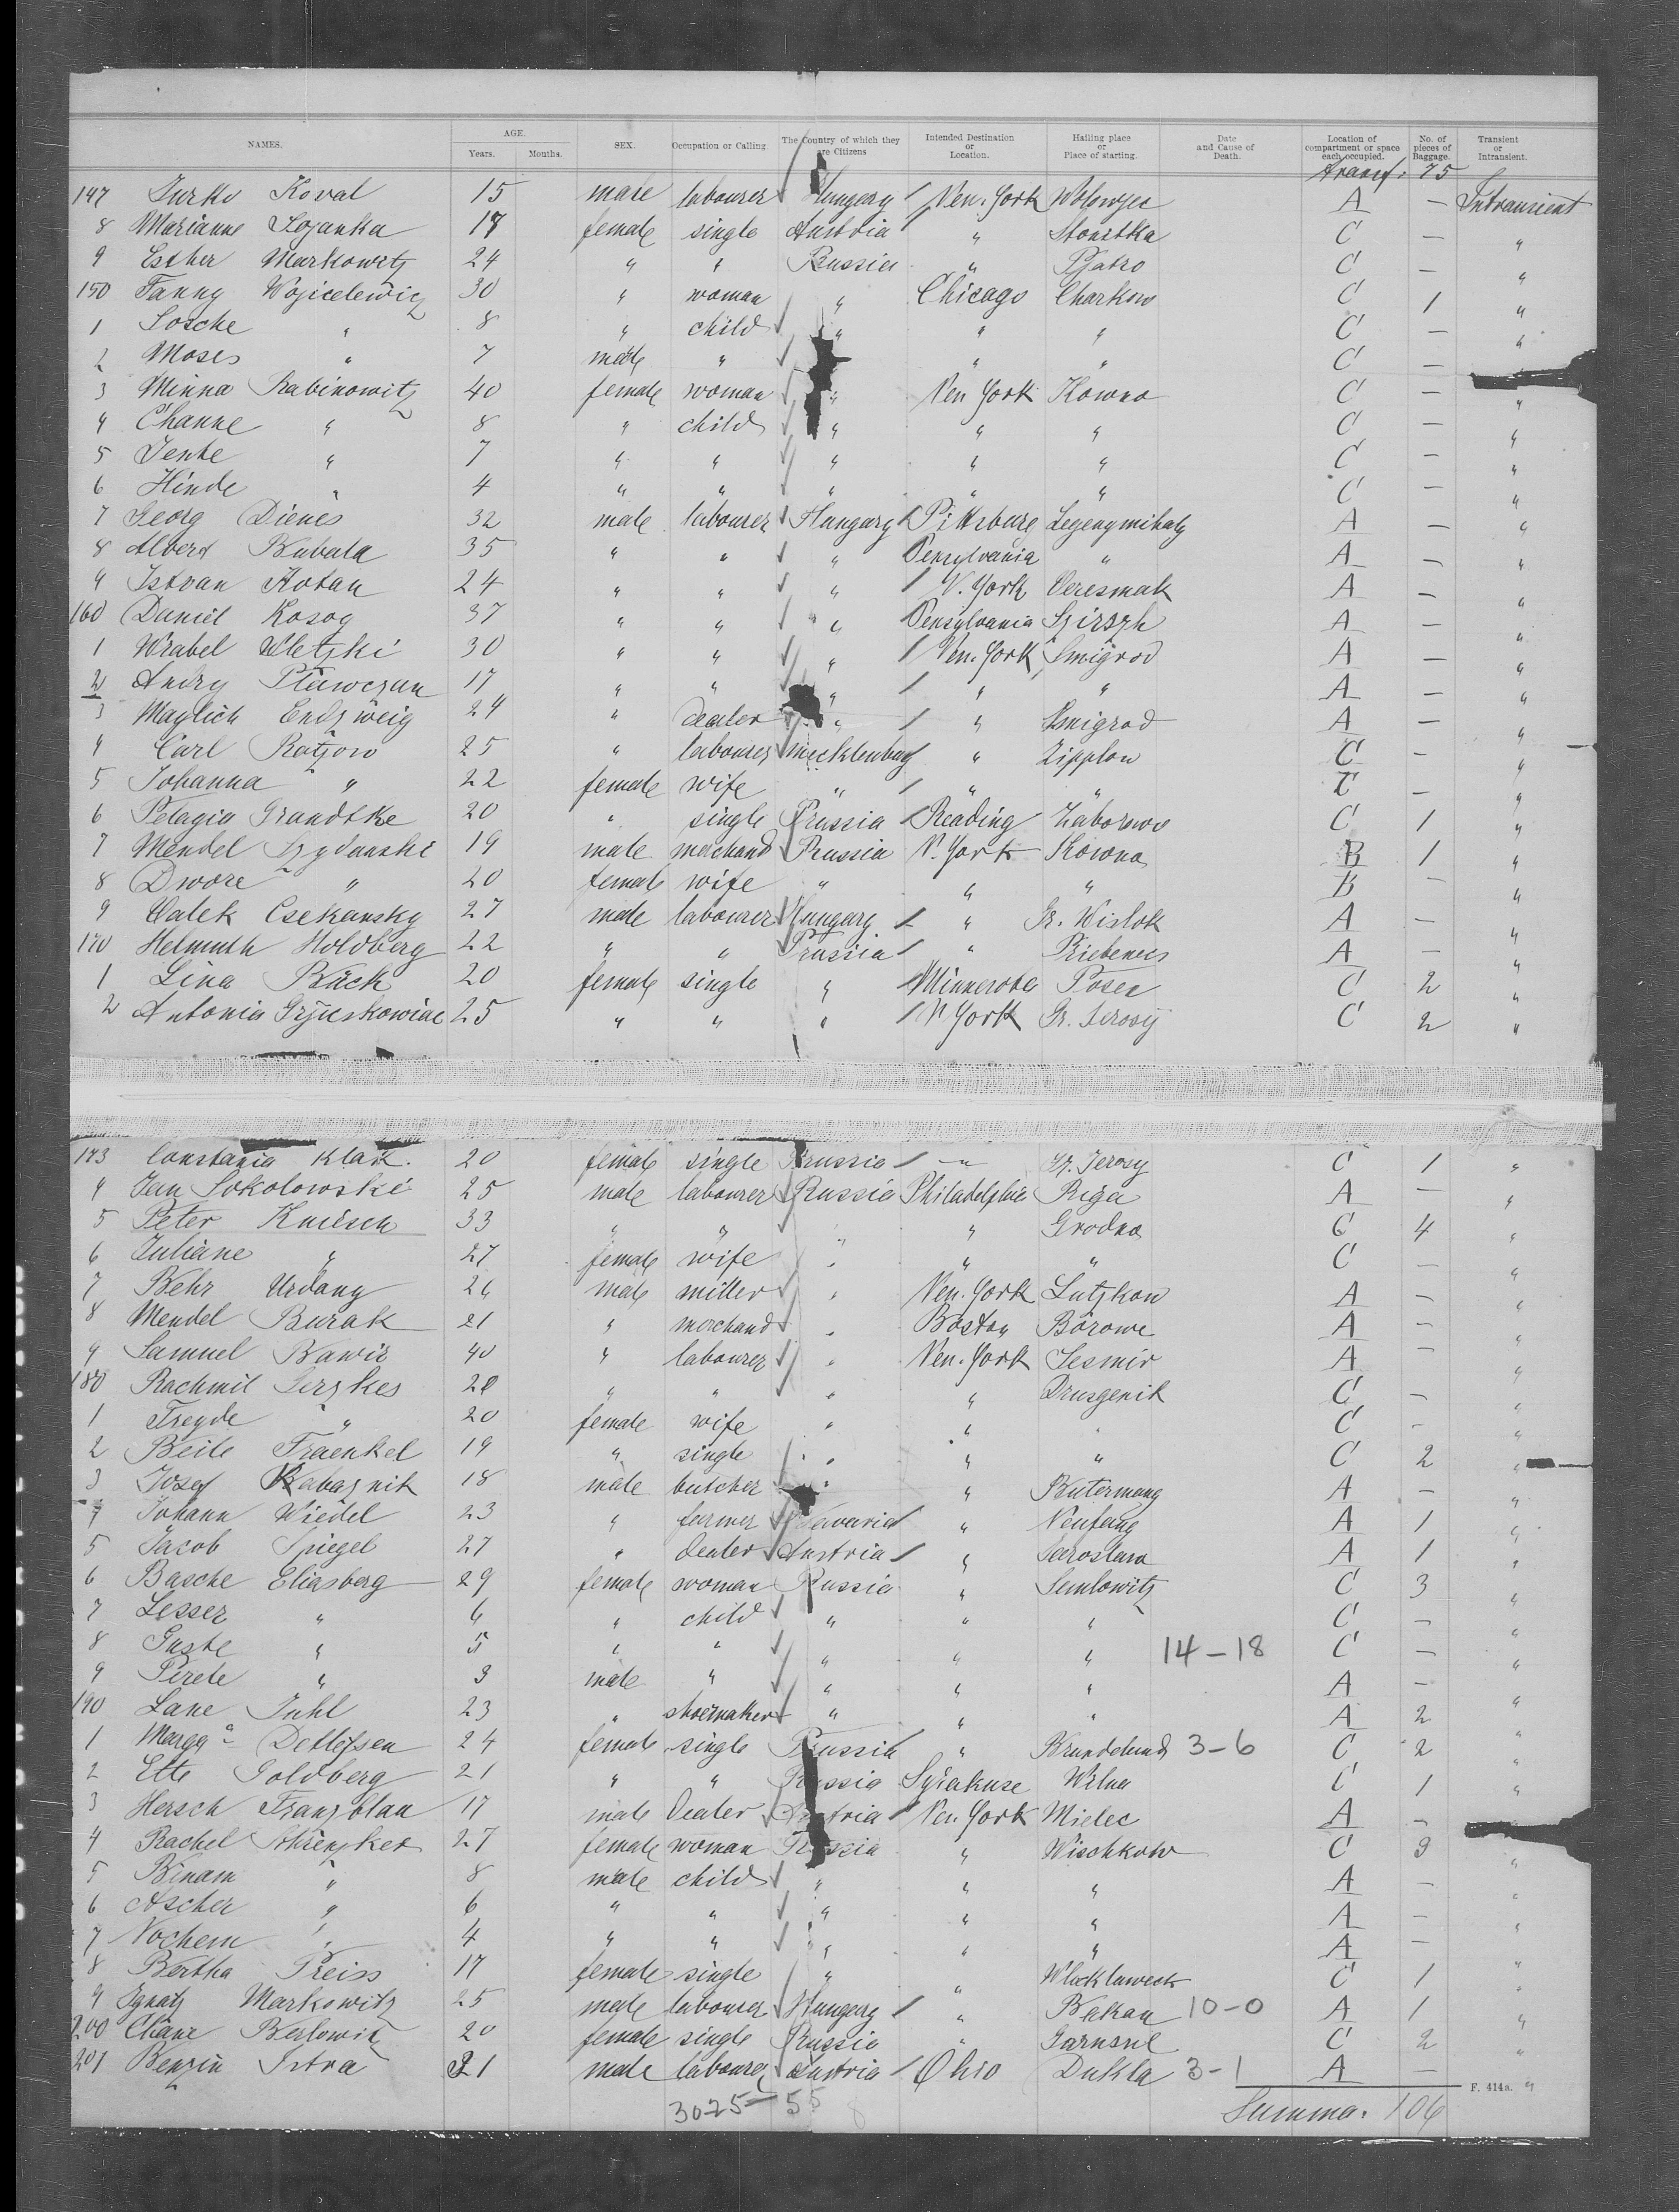 NAMES. AGE. Years. Months. SEX. Occupation or Calling. The Country of which they are Citizens Intended Destination or Location. Hailing place or Place of starting. Date and Cause of Death. Location of compartment or space each occupied. No. of pieces of Baggage. Transient or Intransient.
Transf. 75
147 Jurko Koval 15 male labourer Hungary New-York A — Intransient
8 Marianne 17 female single Austria " C — "
9 Esther Markowitz 24 " " Russia " C — "
150 Fanny 30 " woman " Chicago Charkow C 1 "
1 Sosche " 8 " child " " " C — "
2 Moses " 7 male " " " " C — "
3 Minna Rabinowitz 40 female woman " New York Kowno C — "
4 Channe " 8 " child " " " C — "
5 Jente " 7 " " " " " C — "
6 Hinde " 4 " " " " " C — "
7 Georg Dienes 32 male labourer Hungary Pittsburg Legenymihaly A — "
8 Albert Kubala 35 " " " Pensylvania " A — "
9 Istvan 24 " " " N. York Veresmak A — "
160 Daniel Kosog 37 " " " Pensylvania A — "
1 Wrabel 30 " " " New-York Smigrod A — "
2 Andry 17 " " " " " A — "
3 Endzweig 24 " dealer " " Smigrod A — "
4 Carl Ratzow 25 " labourer Mecklenburg " Zipplow C — "
5 Johanna " 22 female wife " " " C — "
6 Pelagia Grandtke 20 " single Prussia Reading Zaborowo C 1 "
7 Mendel 19 male merchand Russia N. York Kowno B 1 "
8 Dwore " 20 female wife " " " B — "
9 Csekansky 27 male labourer Hungary " Gr. Wislok A — "
170 Helmuth Holdberg 22 " " Prussia " A — "
1 Lina Bäck 20 female single " Minnesota Posen C 2 "
2 Antonia 25 " " " N York Gr. Jerosy C 2 "
173 Constania Klak. 20 female single Prussia " Gr. Jerosy C 1 "
4 Jan Sokolowski 25 male labourer Russia Philadelphia Riga A — "
5 Peter Kniesch 33 " " " " Grodno C 4 "
6 Juliane " 27 female wife " " " C — "
7 Behr Urdang 26 male miller " New-York Lutzkow A — "
8 Mendel Burak 21 " merchand " Boston Borowe A — "
9 Samuel 40 " labourer " New-York Sesmir A — "
180 Rachmil 20 " " " " Drusgenik C — "
1 Freyde " 20 female wife " " C — "
2 Beile Fraenkel 19 " single " " " C 2 "
3 Josef Kabasnik 18 male butcher " " Butermang A — "
4 Johann Wiedel 23 " farmer Bavaria " Neufang A 1 "
5 Jacob Spiegel 27 " dealer Austria " Jaroslaw A 1 "
6 Basche Eliasberg 29 female woman Russia " Semlowitz C 3 "
7 Lesser " 6 " child " " " C — "
8 Guste " 5 " " " " " 14-18 C — "
9 Perete " 3 male " " " " A — "
190 Juhl 23 " shoemaker " " " A 2 "
1 Detlefsen 24 female single Prussia " Brundelund 3-6 C 2 "
2 Ette Goldberg 21 " " Russia Syrakuse Wilna C 1 "
3 Hersch Franzblau 17 male dealer Austria New-York Mielec A — "
4 Rachel 27 female woman Russia " Wischkow C 3 "
5 Binam " 8 male child " " " A — "
6 Ascher " 6 " " " " " A — "
7 Nochem " 4 " " " " " A — "
8 Bertha Preiss 17 female single " " Wlocklaweck C 1 "
9 Ignatz Markowitz 25 male labourer Hungary " Bakan 10-0 A 1 "
200 Chane Berlowitz 20 female single Russia " C 2 "
201 Benzin Istra 21 male labourer Austria Ohio Dukla 3-1 A — "
F. 414a.
3025 55 Summa: 106